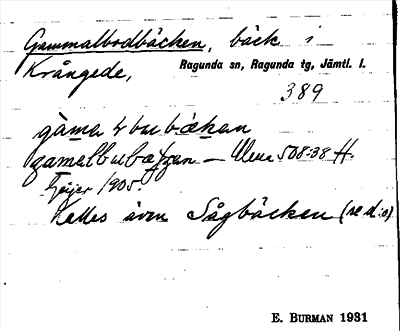 Gammalbodbäcken, bäck i
Krångede, Ragunda sn, Ragunda tg, Jämtl. l.
389
gamalbubæʃʃan — Ulma 508:38 H.
Geijer 1905.
Kallas även Sågbäcken (se d:o)
E. BURMAN 1931